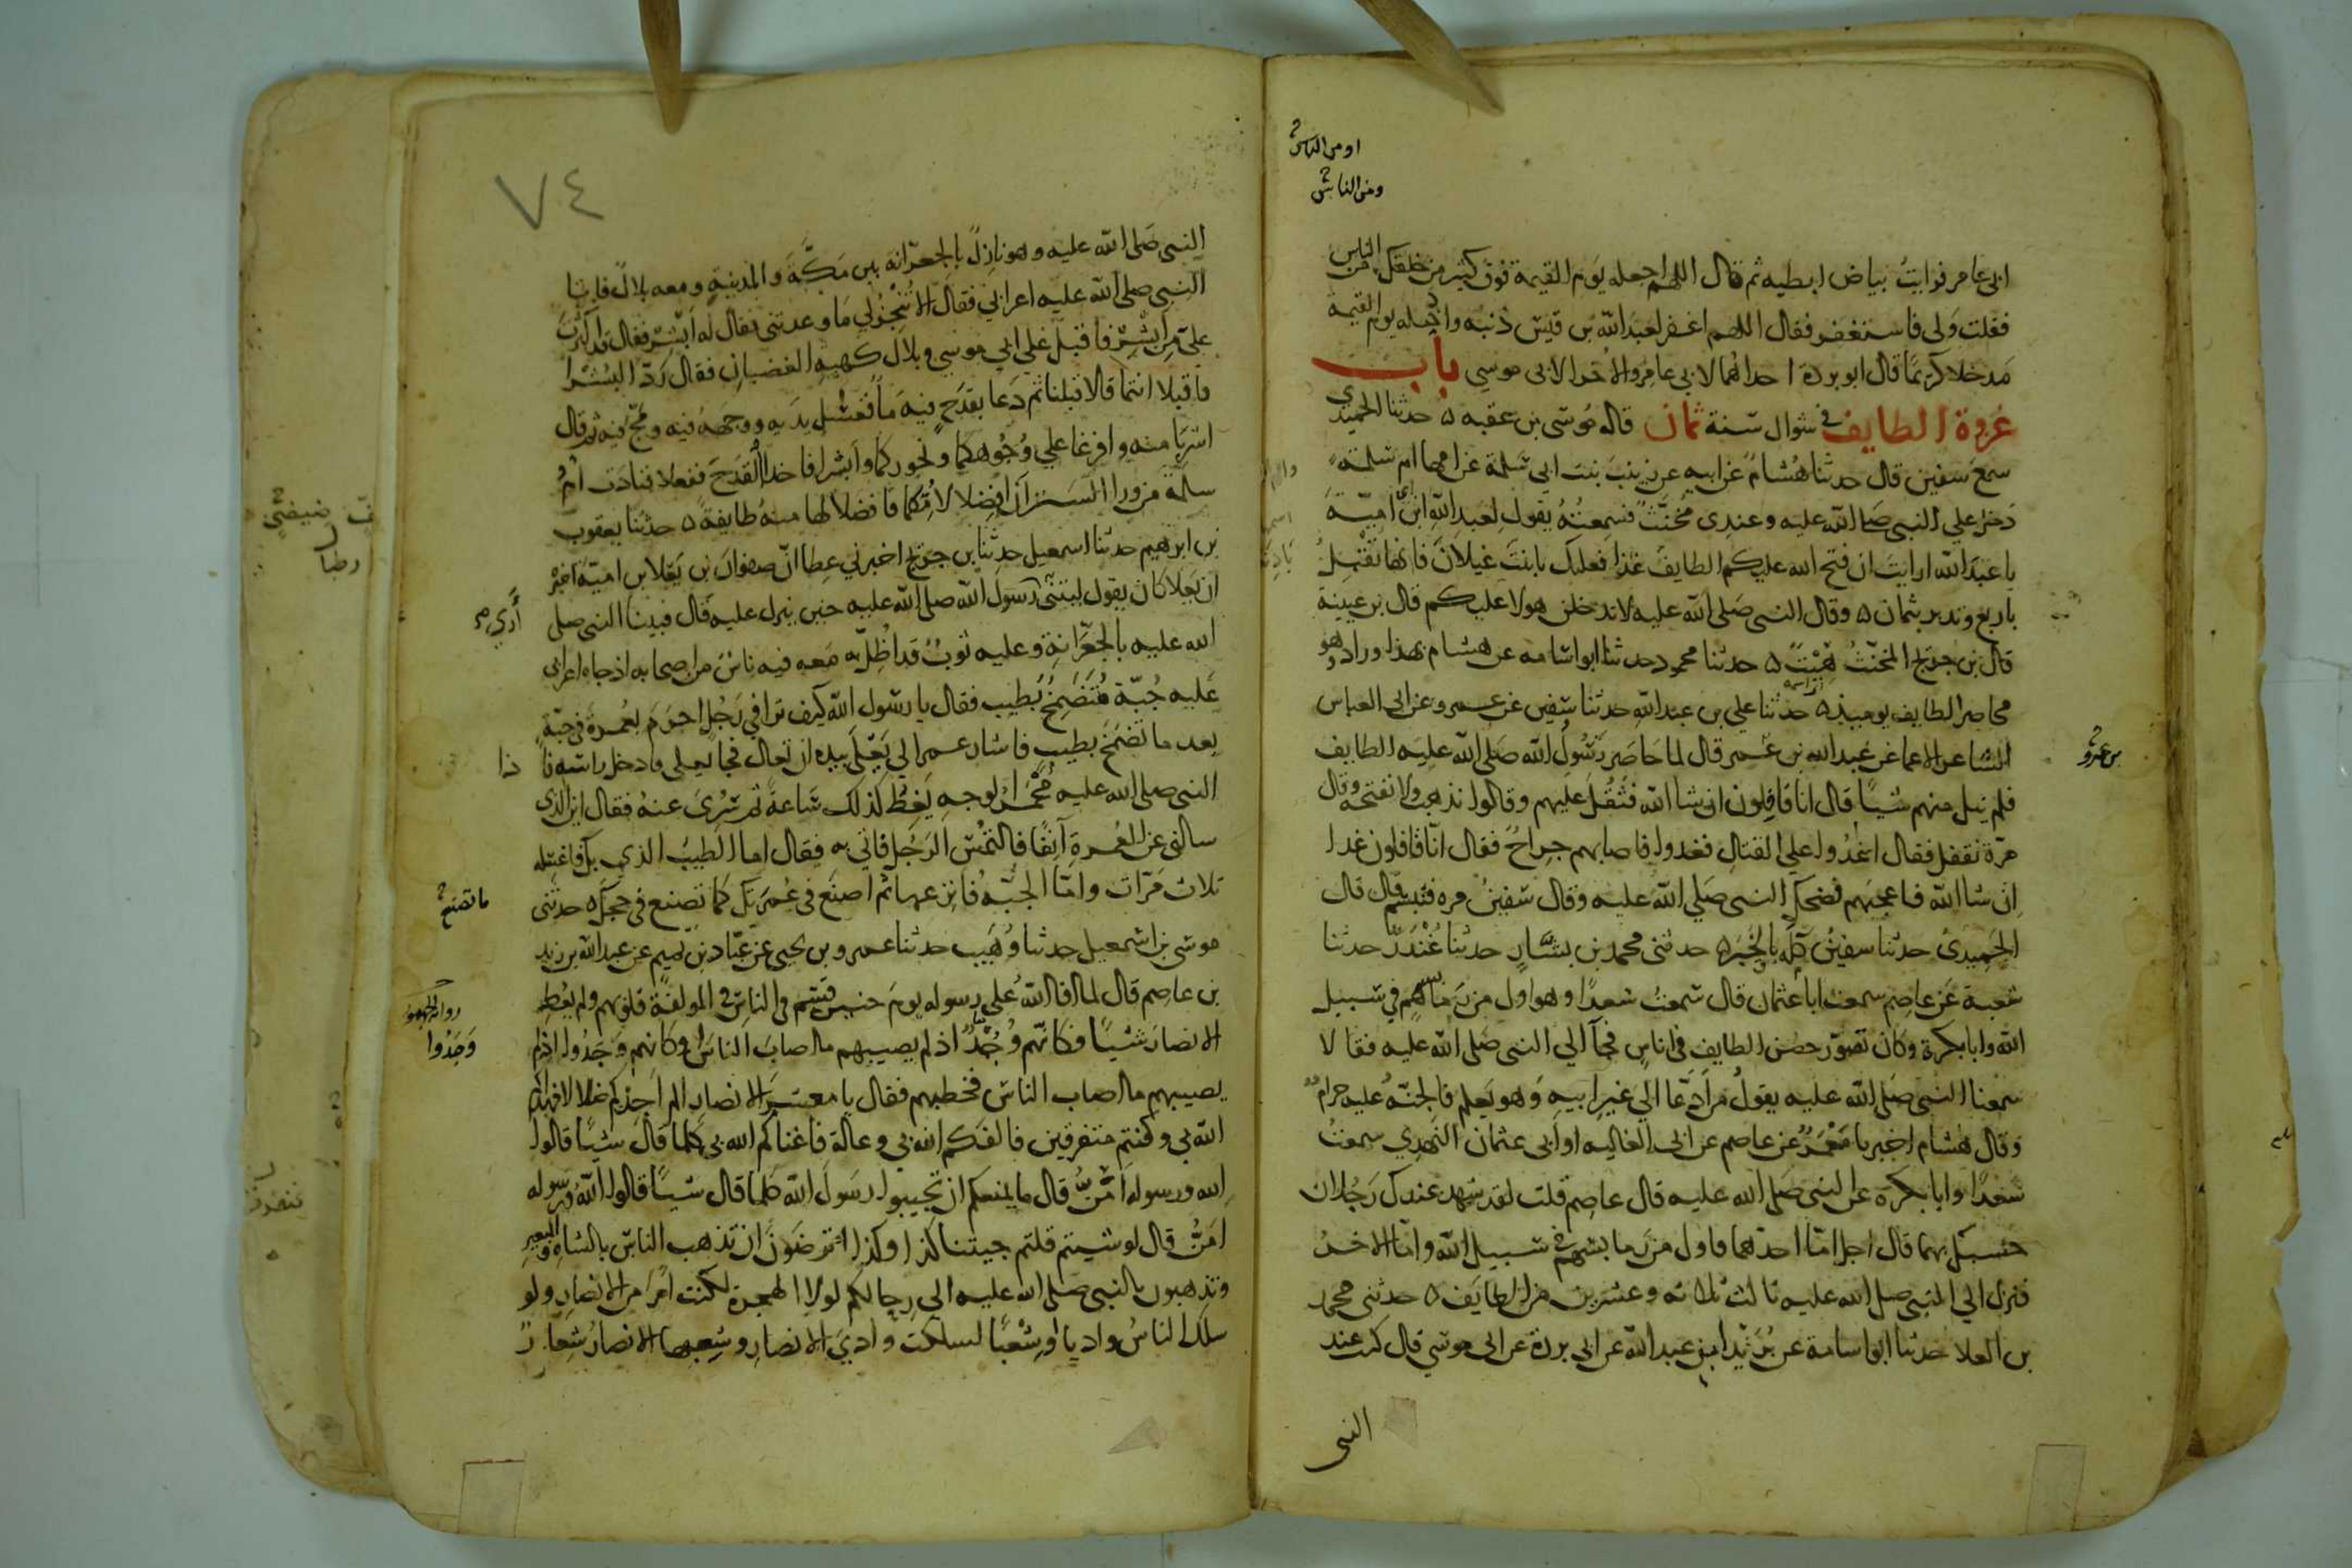 او من الناس
ومن الناس
ابي عامر فرايت بياض ابطيه ثم قال اللهم اجعله يوم القيمة فوق كثير من خلقك من الناس
فقلت ولي فاستغفر فقال اللهم اغفر لعبد الله بن قيس ذنبه وادخله يوم القيمة
مدخلا كريما قال ابو بردة احداهما لابي عامر والاخرا لابي موسي باب
غزوة الطايف في شوال سنة ثمان قاله موسى بن عقبه ۵ حدثنا الحميدي
سمع سفين قال حدثنا هشام عن ابيه عن زينب بنت ابي سلمة عن امها ام سلمة
دخل علي النبي صلى الله عليه وعندي مخنث فسمعته يقول لعبد الله ابن ابي امية
يا عبد الله ارايت ان فتح الله عليكم الطايف غدا فعليك بابنت غيلان فانها تقبل
باربع وتدبر بثمان ۵ وقال النبي صلى الله عليه لا تدخلن هولا عليكم قال بن عيينة
قال بن جريج المخنث هيت ۵ حدثنا محمود حدثنا ابو اسامه عن هشام بهذا وزاد وهو
محاصر الطايف يوميذ ۵ حدثنا علي بن عبد الله حدثنا سفين عن عمرو عن ابي العباس
الشاعر الاعما عن عبد الله بن عمر قال لما حاصر رسول الله صلى الله عليه الطايف
بن عمرو
فلم ينل منهم شيا قال انا قافلون ان شا الله فثقل عليهم وقالوا نذهب ولا نفتحه وقال
مرة نقفل فقال اغدوا علي القتال فغدوا فاصابهم جراح فقال انا قافلون غدا
ان شا الله فاعجبهم فضحك النبي صلي الله عليه وقال سفين مره فتبسم قال قال
الحميدي حدثنا سفين كله بالخبر ۵ حدثني محمد بن بشار حدثنا غندر حدثنا
شعبة عن عاصم سمعت ابا عثمان قال سمعت سعدا وهو اول من رما بسهم في سبيل
الله وابا بكرة وكان تسور حصن الطايف في اناس فجآ الي النبي صلى الله عليه فقالا
سمعنا النبي صلى الله عليه يقول من ادعا الي غير ابيه وهو يعلم فالجنة عليه حرام
وقال هشام اخبرنا معمر عن عاصم عن ابي العاليه او ابي عثمان النهدي سمعت
سعدا وابا بكرة عن النبي صلى الله عليه قال عاصم قلت لقد شهد عندك رجلان
حسبك بهما قال اجل اما احدهما فاول من رما بسهم في سبيل الله واما الاخر
فنزل الي النبي صلى الله عليه ثالث ثلاثه وعشرين من الطايف ۵ حدثني محمد
بن العلا حدثنا ابو اسامة عن بريد بن عبد الله عن ابي بردة عن ابي موسي قال كنت عند
النبي
٧٤
النبي صلى الله عليه وهو نازل بالجعرانة بين مكة والمدينة ومعه بلال فاتا
النبي صلى الله عليه اعرابي فقال الا تنجز لي ما وعدتني فقال له ابشر فقال قد اكثرت
علي من ابشر فاقبل علي ابي موسي وبلال كهية الغضبان فقال رد البشرا
فاقبلا انتما قالا قبلنا ثم دعا بقدح فيه ما فغسل يديه ووجهه فيه ومج فيه ثم قال
اشربا منه وافرغا علي وجوهكما ونحوركما وابشرا فاخدا القدح ففعلا فنادت ام
سلمة من ورا الستر ان افضلا لامكما فافضلا لها منه طايفة ۵ حدثنا يعقوب
بن ابرهيم حدثنا اسمعيل حدثنا بن جريج اخبرني عطا ان صفوان بن يعلا بن امية اخبر
ان يعلا كان يقول ليتني رسول الله صلى الله عليه حين ينزل عليه قال فبينا النبي صلى
أري
الله عليه بالجعرانة وعليه ثوب قد اظل به معه فيه ناس من اصحابه اذ جاه اعرابي
عليه جبة متضمخ بطيب فقال يا رسول الله كيف ترا في رجل احرم بعمرة في جبة
بعد ما تضمخ بطيب فاشار عمر الي يعلى بيده ان تعال فجا يعلى فادخل راسه فا
ذا
النبي صلى الله عليه محمر الوجه يغط كذلك ساعة ثم سري عنه فقال اين الذي
سالني عن العمرة آنفا فالتمس الرجل فاتي به فقال اما الطيب الذي بك فاغسله
ثلاث مرات واما الجبة فانزعها ثم اصنع في عمرتك كما تصنع في حجك ۵ حدثني
ما تصنع
موسى بن اسمعيل حدثنا وهيب حدثنا عمرو بن يحيى عن عباد بن تميم عن عبد الله بن زيد
بن عاصم قال لما افا الله علي رسوله يوم حنين قسم في الناس في المولفة قلوبهم ولم يعط
الانصار شيا فكانهم وجد اذ لم يصيبهم ما اصاب الناس او كانهم وجدوا اذ لم
وجدوا
يصيبهم ما اصاب الناس فخطبهم فقال يا معشر الانصار الم اجدكم ضلالا فهداكم
الله بي وكنتم متفرقين فالفكم الله بي وعالة فاغناكم الله بي كلما قال شيا قالوا
الله ورسوله امن قال ما يمنعكم ان تجيبوا رسول الله كلما قال شيا قالوا الله ورسوله
امن قال لو شيتم قلتم جيتنا كذا وكذا اترضون ان تذهب الناس بالشاة والبعير
وتذهبون بالنبي صلى الله عليه الي رحالكم لولا الهجرة لكنت امرا من الانصار ولو
سلك الناس واديا او شعبا لسلكت وادي الانصار وشعبها الانصار شعار